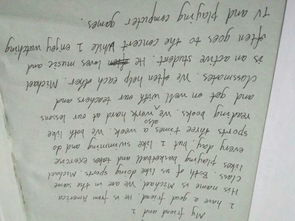 My friend and I
I have a good friend
His name is Michael is from America
class. Both of us like doing sports. Michael
likes playing basketball and takes exercise
every day, but I like swimming and do
sports three times a week. We both like
also
reading books, work hard at our lessons
and get on well with our teachers and
classmates. We often help each other. Michael
is an active student. He loves music and
often goes to the concert while I enjoy watching
TV and playing computer games.